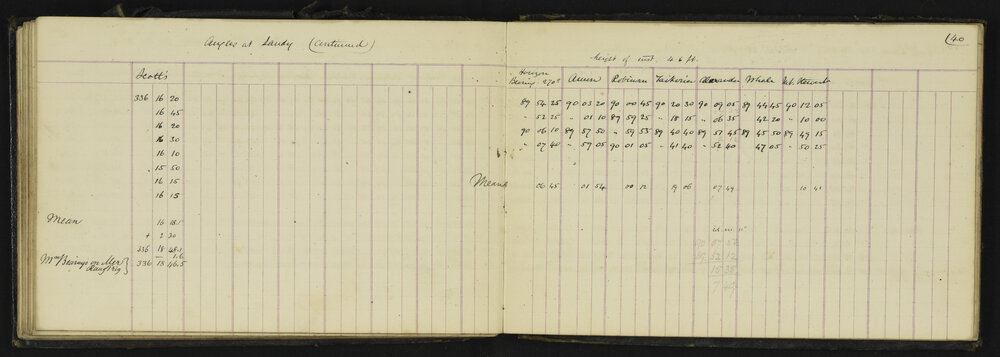 Angles at Sandy (Continued)
Scott's
336 16 20
16 45
16 20
16 30
16 10
15 50
16 15
16 15
Mean 16 18.1
+ 2 30
336 18 48.1
1.6
Mean Bearings on Mer 336 18 46.5
(40
Height of inst. 4.6 ft.
Horizon
Bearing 270° Robinson Whale Mt. Stewart
89 54 25 90 03 20 90 00 45 90 20 30 90 09 05 89 44 45 90 12 05
" 52 25 " 01 10 89 59 25 " 18 15 " 06 35 42 20 " 10 00
90 06 10 89 57 50 " 59 53 89 40 40 89 57 45 89 45 50 89 49 15
" 07 40 " 59 05 90 01 05 " 41 40 " 52 40 47 05 " 50 25
Means 06 45 01 54 00 12 9 06 07 49 10 41